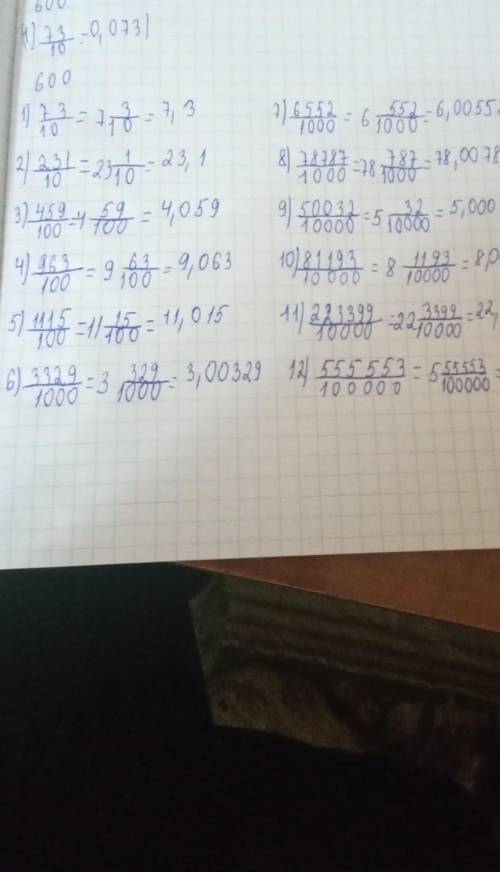 600.
73/10 = 0,073)
600
1) 73/10 = 7 3/10 = 7,3
2) 231/10 = 23 1/10 = 23,1
3) 459/100 = 4 59/100 = 4,059
4) 963/100 = 9 63/100 = 9,063
5) 1115/100 = 11 15/100 = 11,015
6) 3329/1000 = 3 329/1000 = 3,00329
7) 6552/1000 = 6 552/1000 = 6,0055
8) 78787/1000 = 78 787/1000 = 78,0078
9) 50032/10000 = 5 32/10000 = 5,000
10) 81193/10000 = 8 1193/10000 = 8,0
11) 223399/10000 = 22 3399/10000 = 22,
12) 555553/100000 = 5 55553/100000 =